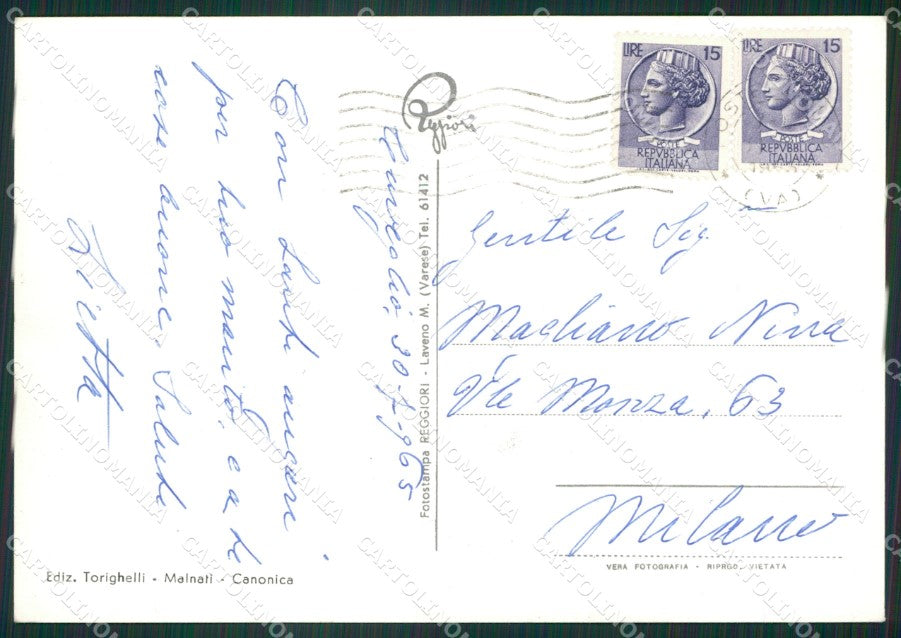 LIRE 15
POSTE
REPVBBLICA
ITALIANA
LIRE 15
POSTE
REPVBBLICA
ITALIANA
(VA)
Reggiori
30-7-965
Con tanti auguri
per tuo marito, e a te
cose buone. Saluti
Gentile Sig.
Magliano Nina
V.le Monza, 63
Milano
Fotostampa REGGIORI - Laveno M. (Varese) Tel. 61412
Ediz. Torighelli - Malnati - Canonica
VERA FOTOGRAFIA - RIPROD. VIETATA
CARTOLINOMANIA